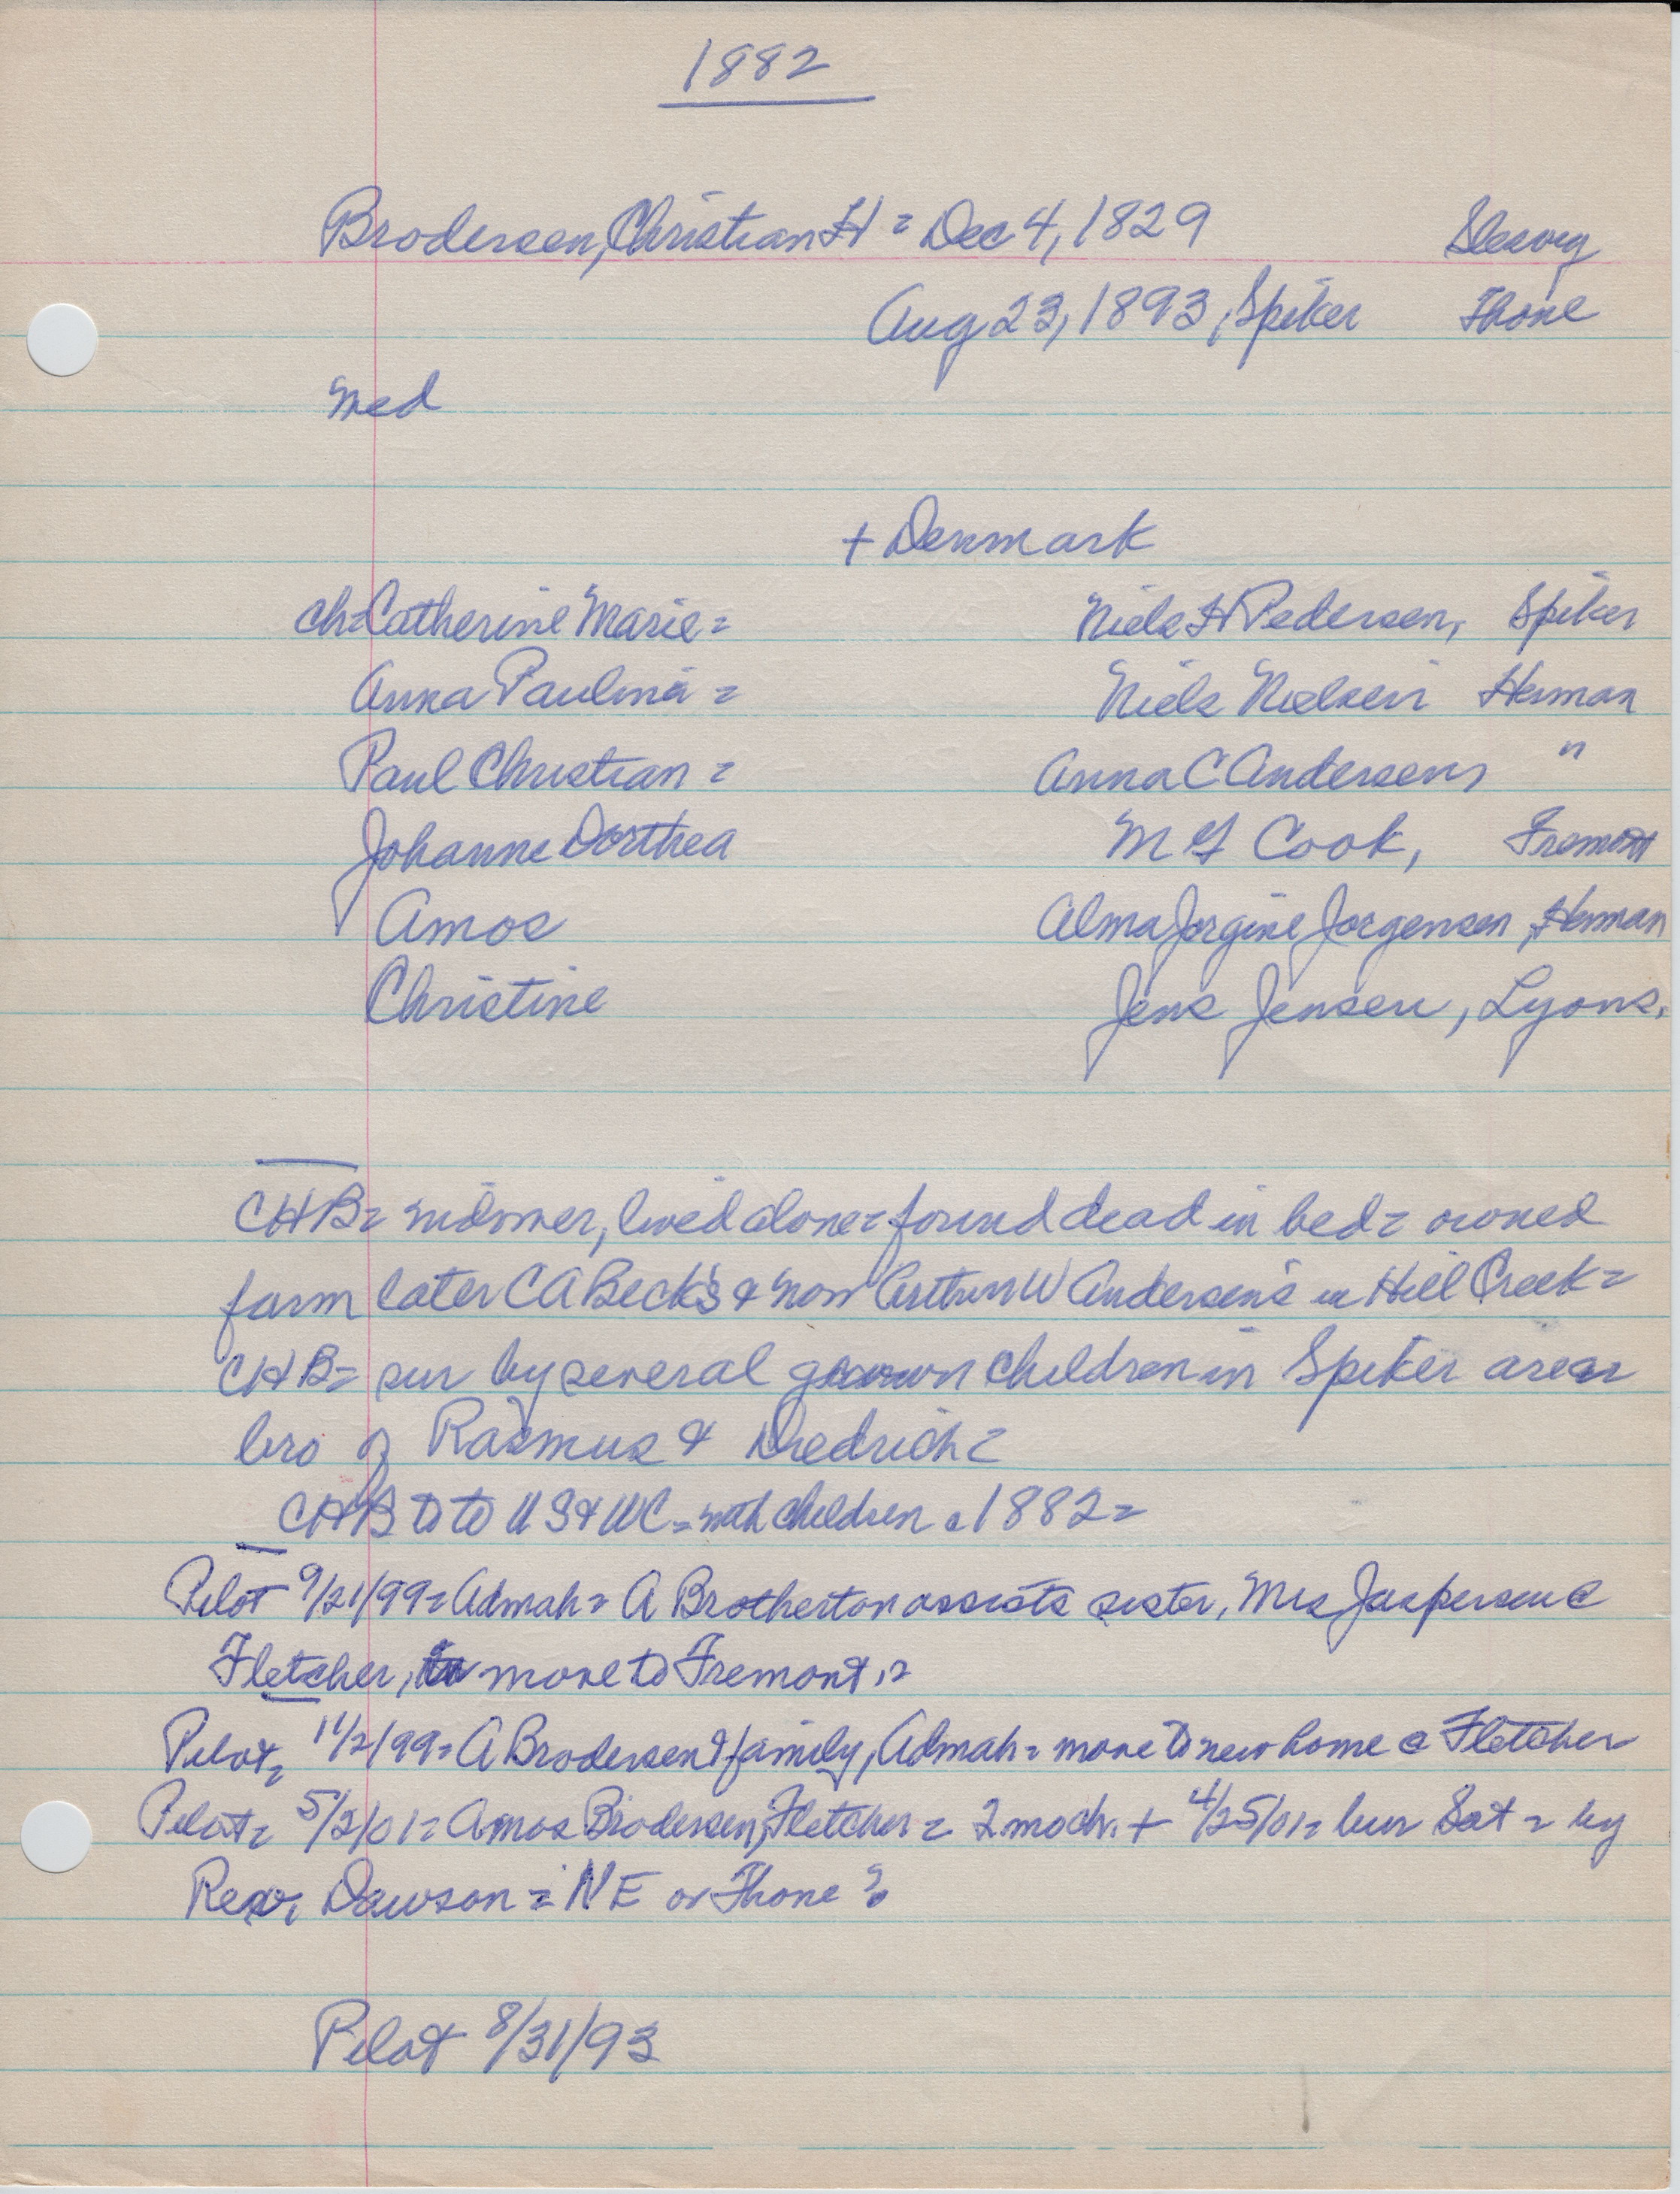 1882
Brodersen, Christian H = Dec 4, 1829 Slesvig
Aug 23, 1893, Spiker Thone
med
+ Denmark
ch = Catherine Marie = Niels H Pedersen, Spiker
Anna Paulina = Niels Nielsen Herman
Paul Christian = Anna C Andersen, "
Johanne Dorthea M G Cook, Fremont
Amos Alma Jorgine Jorgensen, Herman
Christine Jens Jensen, Lyons.
CHB = widower, lived alone = found dead in bed = owned
farm later C A Beck's & now Arthur W Andersen's in Hill Creek =
CHB = sur by several grown children in Spiker area =
bro of Rasmus & Diedrich =
CHB to US & WC = with children c 1882 =
Pilot 9/21/99 = Admah = A Brotherton assists sister, Mrs Jaspersen @
Fletcher, move to Fremont, =
Pilot, 11/2/99 = A Brodersen & family, Admah = move to new home @ Fletcher
Pilot = 5/2/01 = Amos Brodersen, Fletcher = 2 mo ch. + 4/25/01 = bur Sat = by
Rev. Dawson = NE or Thone ?
Pilot 8/31/93